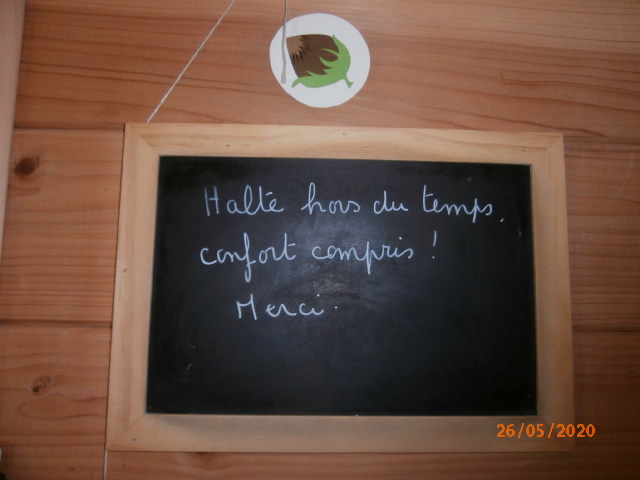 Halte hors du temps,
confort compris !
Merci.
26/05/2020